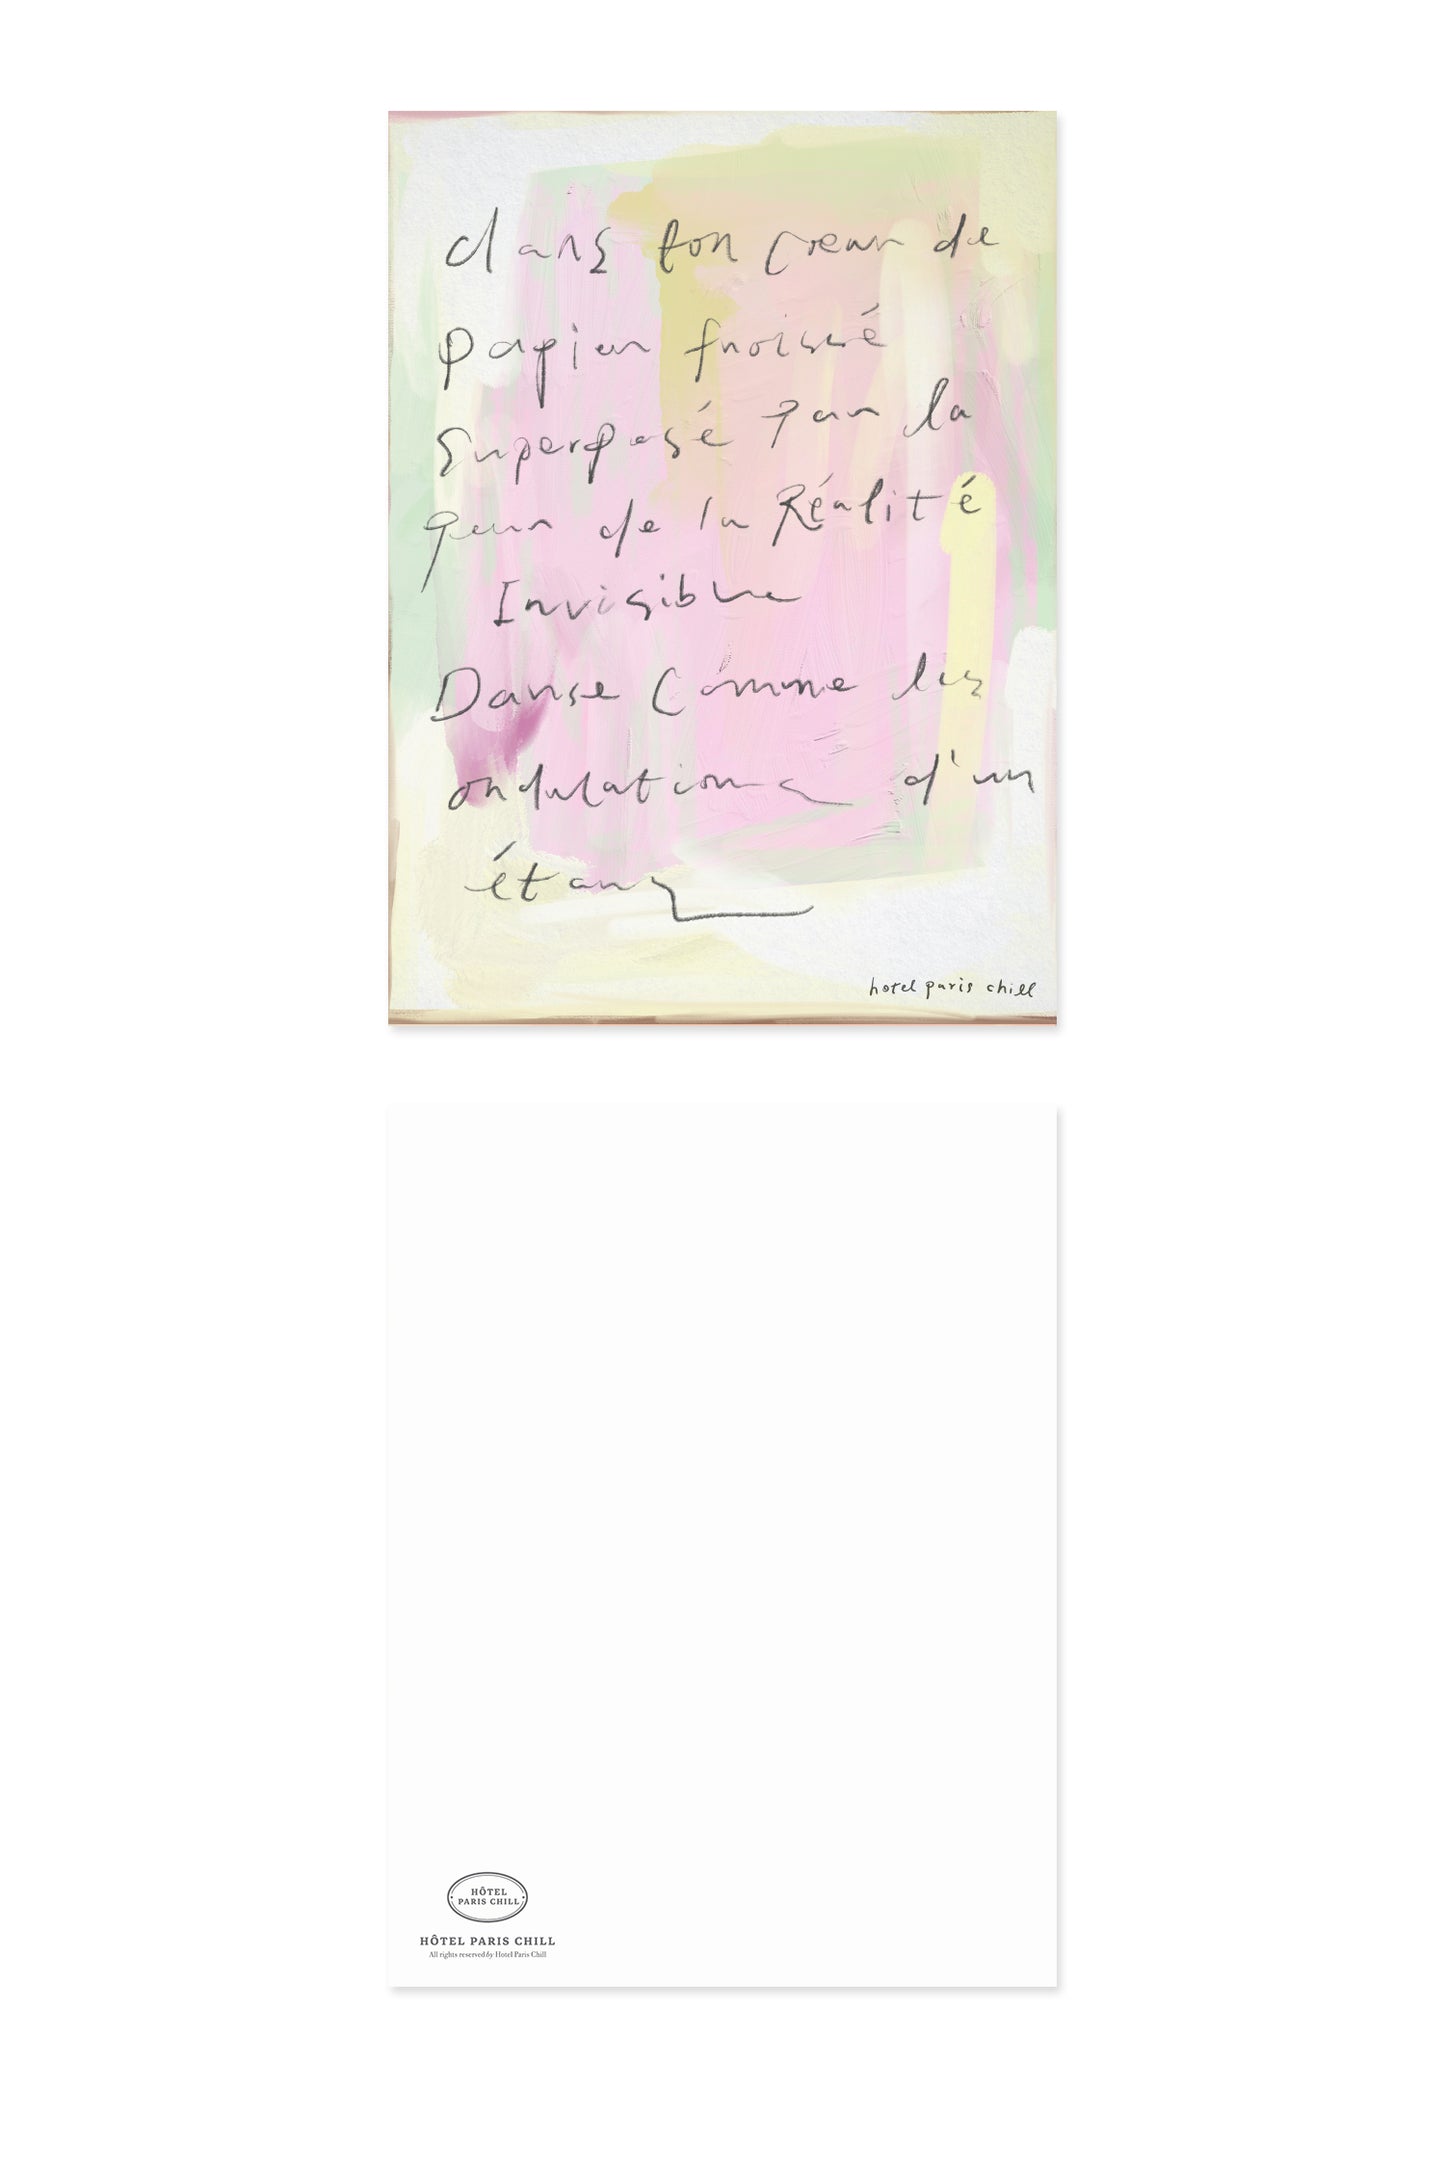 dans ton coeur de
papier froissé
Superposé par la
peur de la Réalité
Invisible
Danse Comme les
ondulations d'un
étang
hotel paris chill
HÔTEL
PARIS CHILL
HÔTEL PARIS CHILL
All rights reserved by Hotel Paris Chill